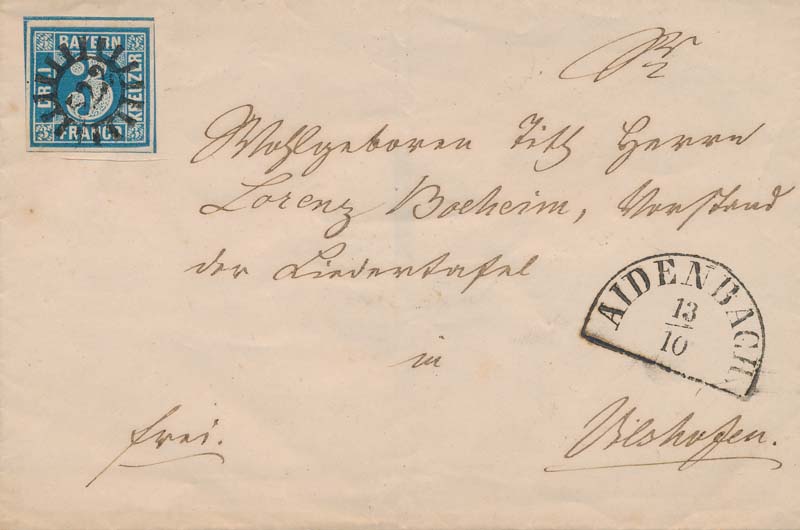 BAYERN
DREI
3
KREUZER
FRANCO
Wohlgeboren Titl Herrn
Lorenz Boeheim, Vorstand
der Liedertafel
AIDENBACH
13
10
in
frei.
Vilshofen.